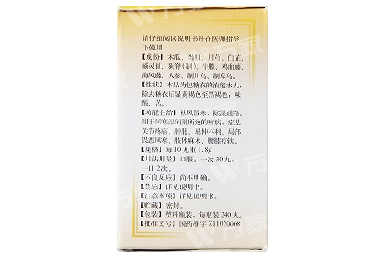 请仔细阅读说明书并在医师指导
下使用
【成份】木瓜、当归、川芎、白芷、
威灵仙、狗脊（制）、牛膝、鸡血藤、
海风藤、人参、制川乌、制草乌。
【性状】本品为包糖衣的浓缩水丸，
除去糖衣后显黄褐色至黑褐色；味
酸、苦。
【功能主治】祛风散寒，除湿通络。
用于风寒湿闭阻所致的痹病，症见
关节疼痛、肿胀、屈伸不利、局部
畏恶风寒、肢体麻木、腰膝酸软。
【规格】每10丸重1.8g
【用法用量】口服。一次30丸，
一日2次。
【不良反应】尚不明确。
【禁忌】详见说明书。
【注意事项】详见说明书。
【贮藏】密封。
【包装】塑料瓶装，每瓶装240丸。
【批准文号】国药准字Z11020068